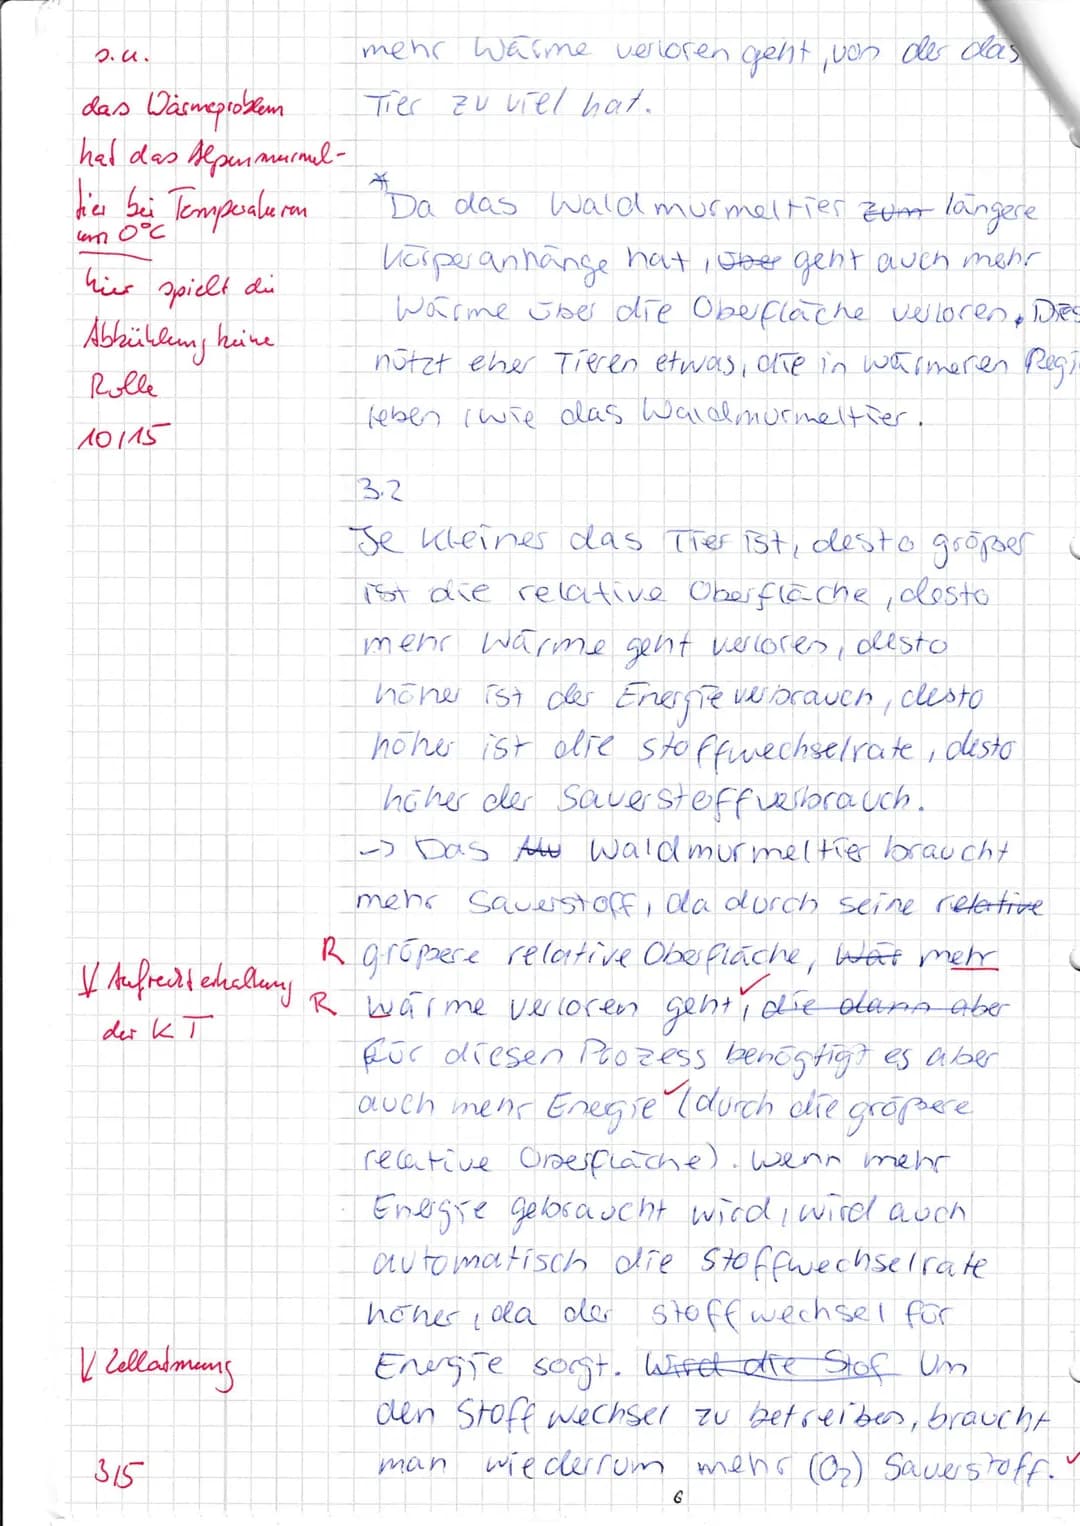 s.u.
das Wärmeproblem
hat das Alpenmurmel-
tier bei Temperaturen
um 0°C
hier spielt die
Abkühlung keine
Rolle
10/15
mehr Wärme verloren geht, von der das
Tier zu viel hat.
* Da das Waldmurmeltier zum längere
Körperanhänge hat, über geht auch mehr
Wärme über die Oberfläche verloren. Dies
nützt eher Tieren etwas, die in wärmeren Regi
leben, wie das Waldmurmeltier.
3.2
Je kleiner das Tier ist, desto größer
ist die relative Oberfläche, desto
mehr Wärme geht verloren, desto
höher ist der Energieverbrauch, desto
höher ist die Stoffwechselrate, desto
höher der Sauerstoffverbrauch.
-> Das Waldmurmeltier braucht
mehr Sauerstoff, da durch seine relative
R größere relative Oberfläche, Wär mehr
√ Aufrechterhaltung
der KT
R Wärme verloren geht, die dann aber
für diesen Prozess benögtigt es aber
auch mehr Energie (durch die größere
relative Oberfläche). Wenn mehr
Energie gebraucht wird, wird auch
automatisch die Stoffwechselrate
höher, da der Stoffwechsel für
√ Zellatmung
Energie sorgt. Wird die Stof Um
den Stoffwechsel zu betreiben, braucht
3/5
man wiederrum mehr (O₂) Sauerstoff.
6